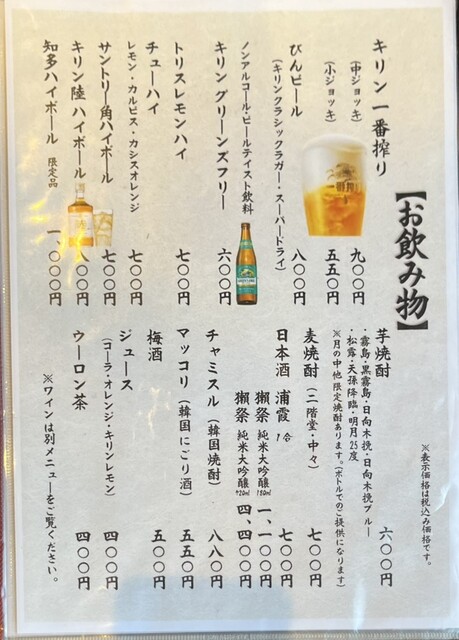 【お飲み物】
※表示価格は税込み価格です。
キリン 一番搾り
（中ジョッキ） 九〇〇円
（小ジョッキ） 五五〇円
びんビール 八〇〇円
（キリンクラシックラガー・スーパードライ）
ノンアルコール・ビールテイスト飲料
キリン グリーンズフリー 六〇〇円
トリスレモンハイ 七〇〇円
チューハイ 七〇〇円
レモン・カルピス・カシスオレンジ
サントリー角ハイボール 七〇〇円
キリン陸 ハイボール 八〇〇円
知多ハイボール 限定品 一、〇〇〇円
芋焼酎 六〇〇円
・霧島・黒霧島・日向木挽・日向木挽ブルー
・松露・天孫降臨・明月25度
※月の中他 限定焼酎あります。（ボトルでのご提供になります）
麦焼酎（二階堂・中々） 七〇〇円
日本酒 浦霞 1合 七〇〇円
獺祭 純米大吟醸 180ml 一、一〇〇円
獺祭 純米大吟醸 720ml 四、四〇〇円
チャミスル（韓国焼酎） 八八〇円
マッコリ（韓国にごり酒） 五五〇円
梅酒 五〇〇円
ジュース 四〇〇円
（コーラ・オレンジ・キリンレモン）
ウーロン茶 四〇〇円
※ワインは別メニューをご覧ください。